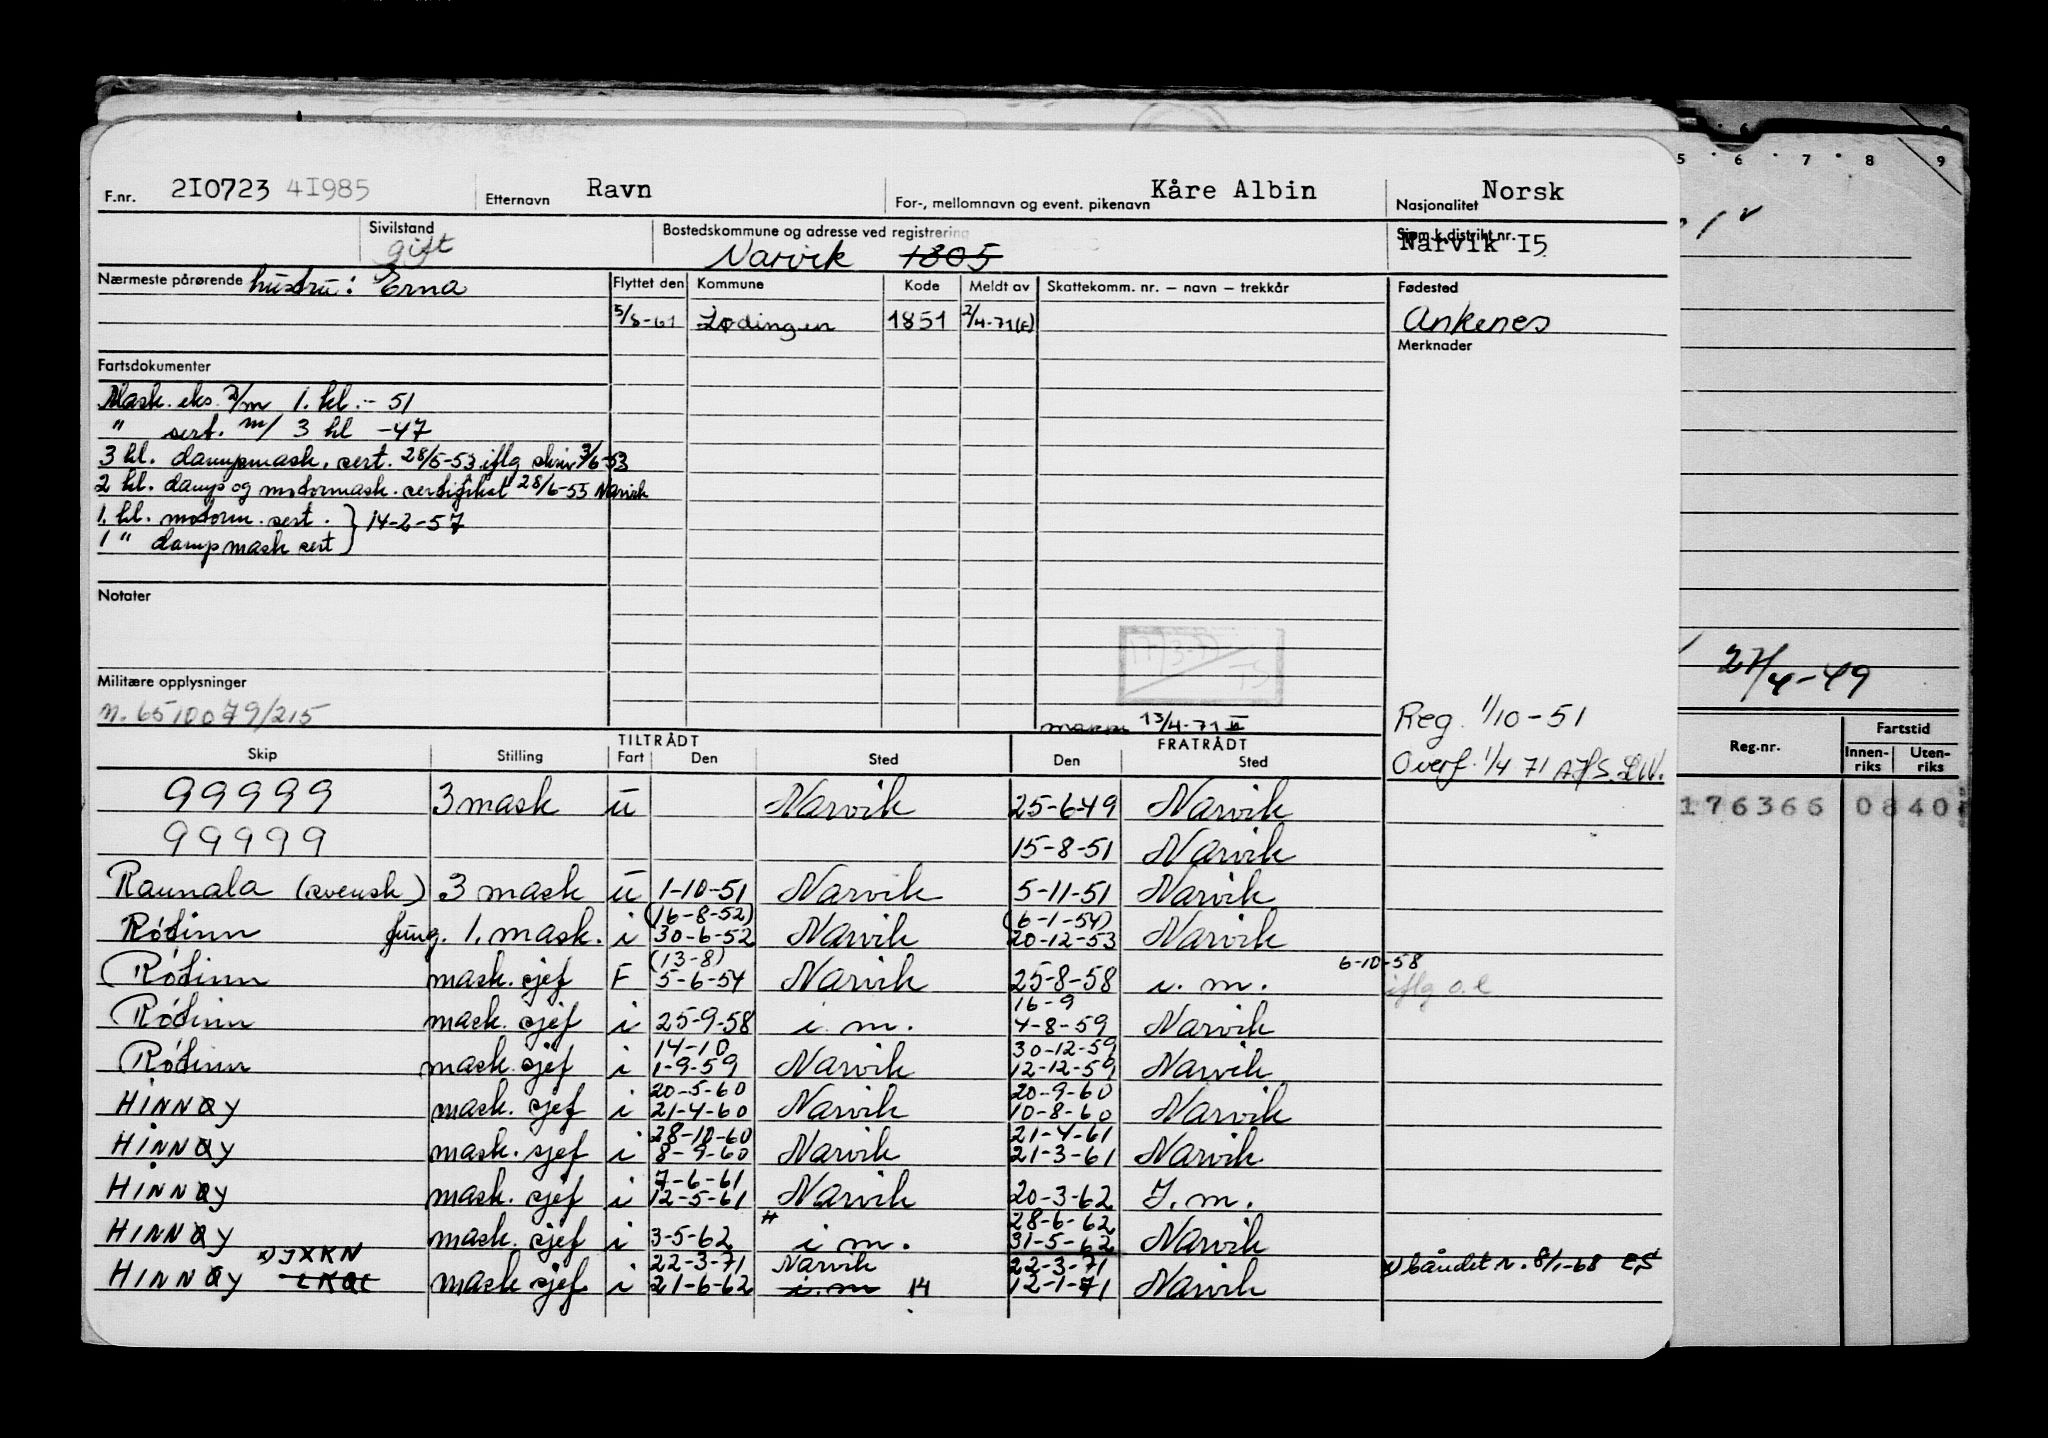 F.nr. 2I0723 4I985 Etternavn Ravn For-, mellomnavn og event. pikenavn Kåre Albin Nasjonalitet Norsk
Sivilstand gift Bostedskommune og adresse ved registrering Narvik 1805 Sjøm.k.distrikt nr. Narvik I5
Nærmeste pårørende hustru: Erna Flyttet den Kommune Kode Meldt av Skattekomm. nr. – navn – trekkår Fødested
5/8-61 Lødingen 1851 2/4-71(F) Ankenes
Merknader
Fartsdokumenter
Mask. eks. D/m 1. kl. - 51
" sert. m/ 3 kl -47
3 kl. dampmask. sert. 28/5-53 iflg skriv 3/6-53
2 kl. damp og motormask. sertifikat 28/6-55 Narvik
1. kl. motorm. sert. } 14-2-57
1 " dampmask sert
Notater
17/3-71
TS
Militære opplysninger
n. 6510079/215
13/4-71
Reg. 1/10-51
Overf. 1/4 71
27/4-49
Skip Stilling TILTRÅDT Fart Den Sted FRATRÅDT Den Sted
Reg.nr. Fartstid Innen-riks Uten-riks
99999 3 mask u Narvik 25-6-49 Narvik
176366
99999 15-8-51 Narvik
Raunala (svensk) 3 mask u 1-10-51 Narvik 5-11-51 Narvik
(16-8-52) (6-1-54)
Rótinn fung. 1. mask. i 30-6-52 Narvik 20-12-53 Narvik
(13-8) 6-10-58
Rótinn mask. sjef F 5-6-54 Narvik 25-8-58 i. m. iflg o.l
16-9
Rótinn mask. sjef i 25-9-58 i m. 4-8-59 Narvik
14-10 30-12-59
Rótinn mask. sjef i 1-9-59 Narvik 12-12-59 Narvik
20-5-60 20-9-60
HINNØY mask. sjef i 21-4-60 Narvik 10-8-60 Narvik
28-10-60 21-4-61
HINNØY mask. sjef i 8-9-60 Narvik 21-3-61 Narvik
7-6-61
HINNØY mask. sjef i 12-5-61 Narvik 20-3-62 I. m.
28-6-62
HINNØY mask. sjef i 3-5-62 i m. 31-5-62 Narvik
x) JXKN 22-3-71 Narvik 22-3-71
HINNØY mask sjef i 21-6-62 i. m 14 12-1-71 Narvik x) båndet n. 8/1-68 ES
5 6 7 8 9